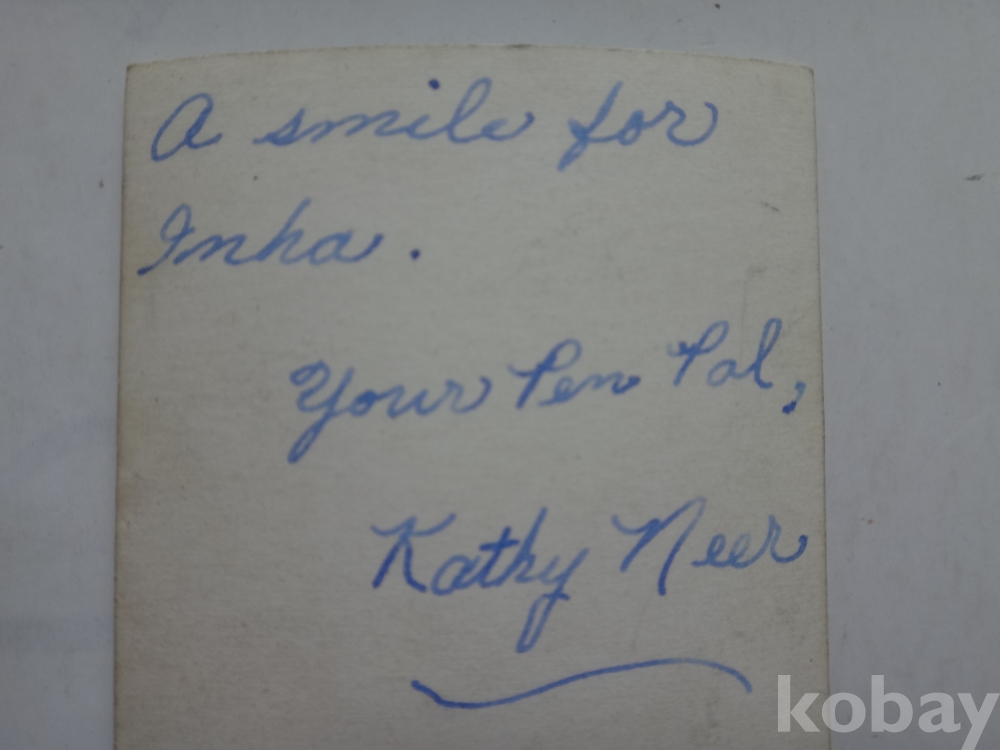 A smile for
Inha.
Your Pen Pal,
Kathy Neer
kobay